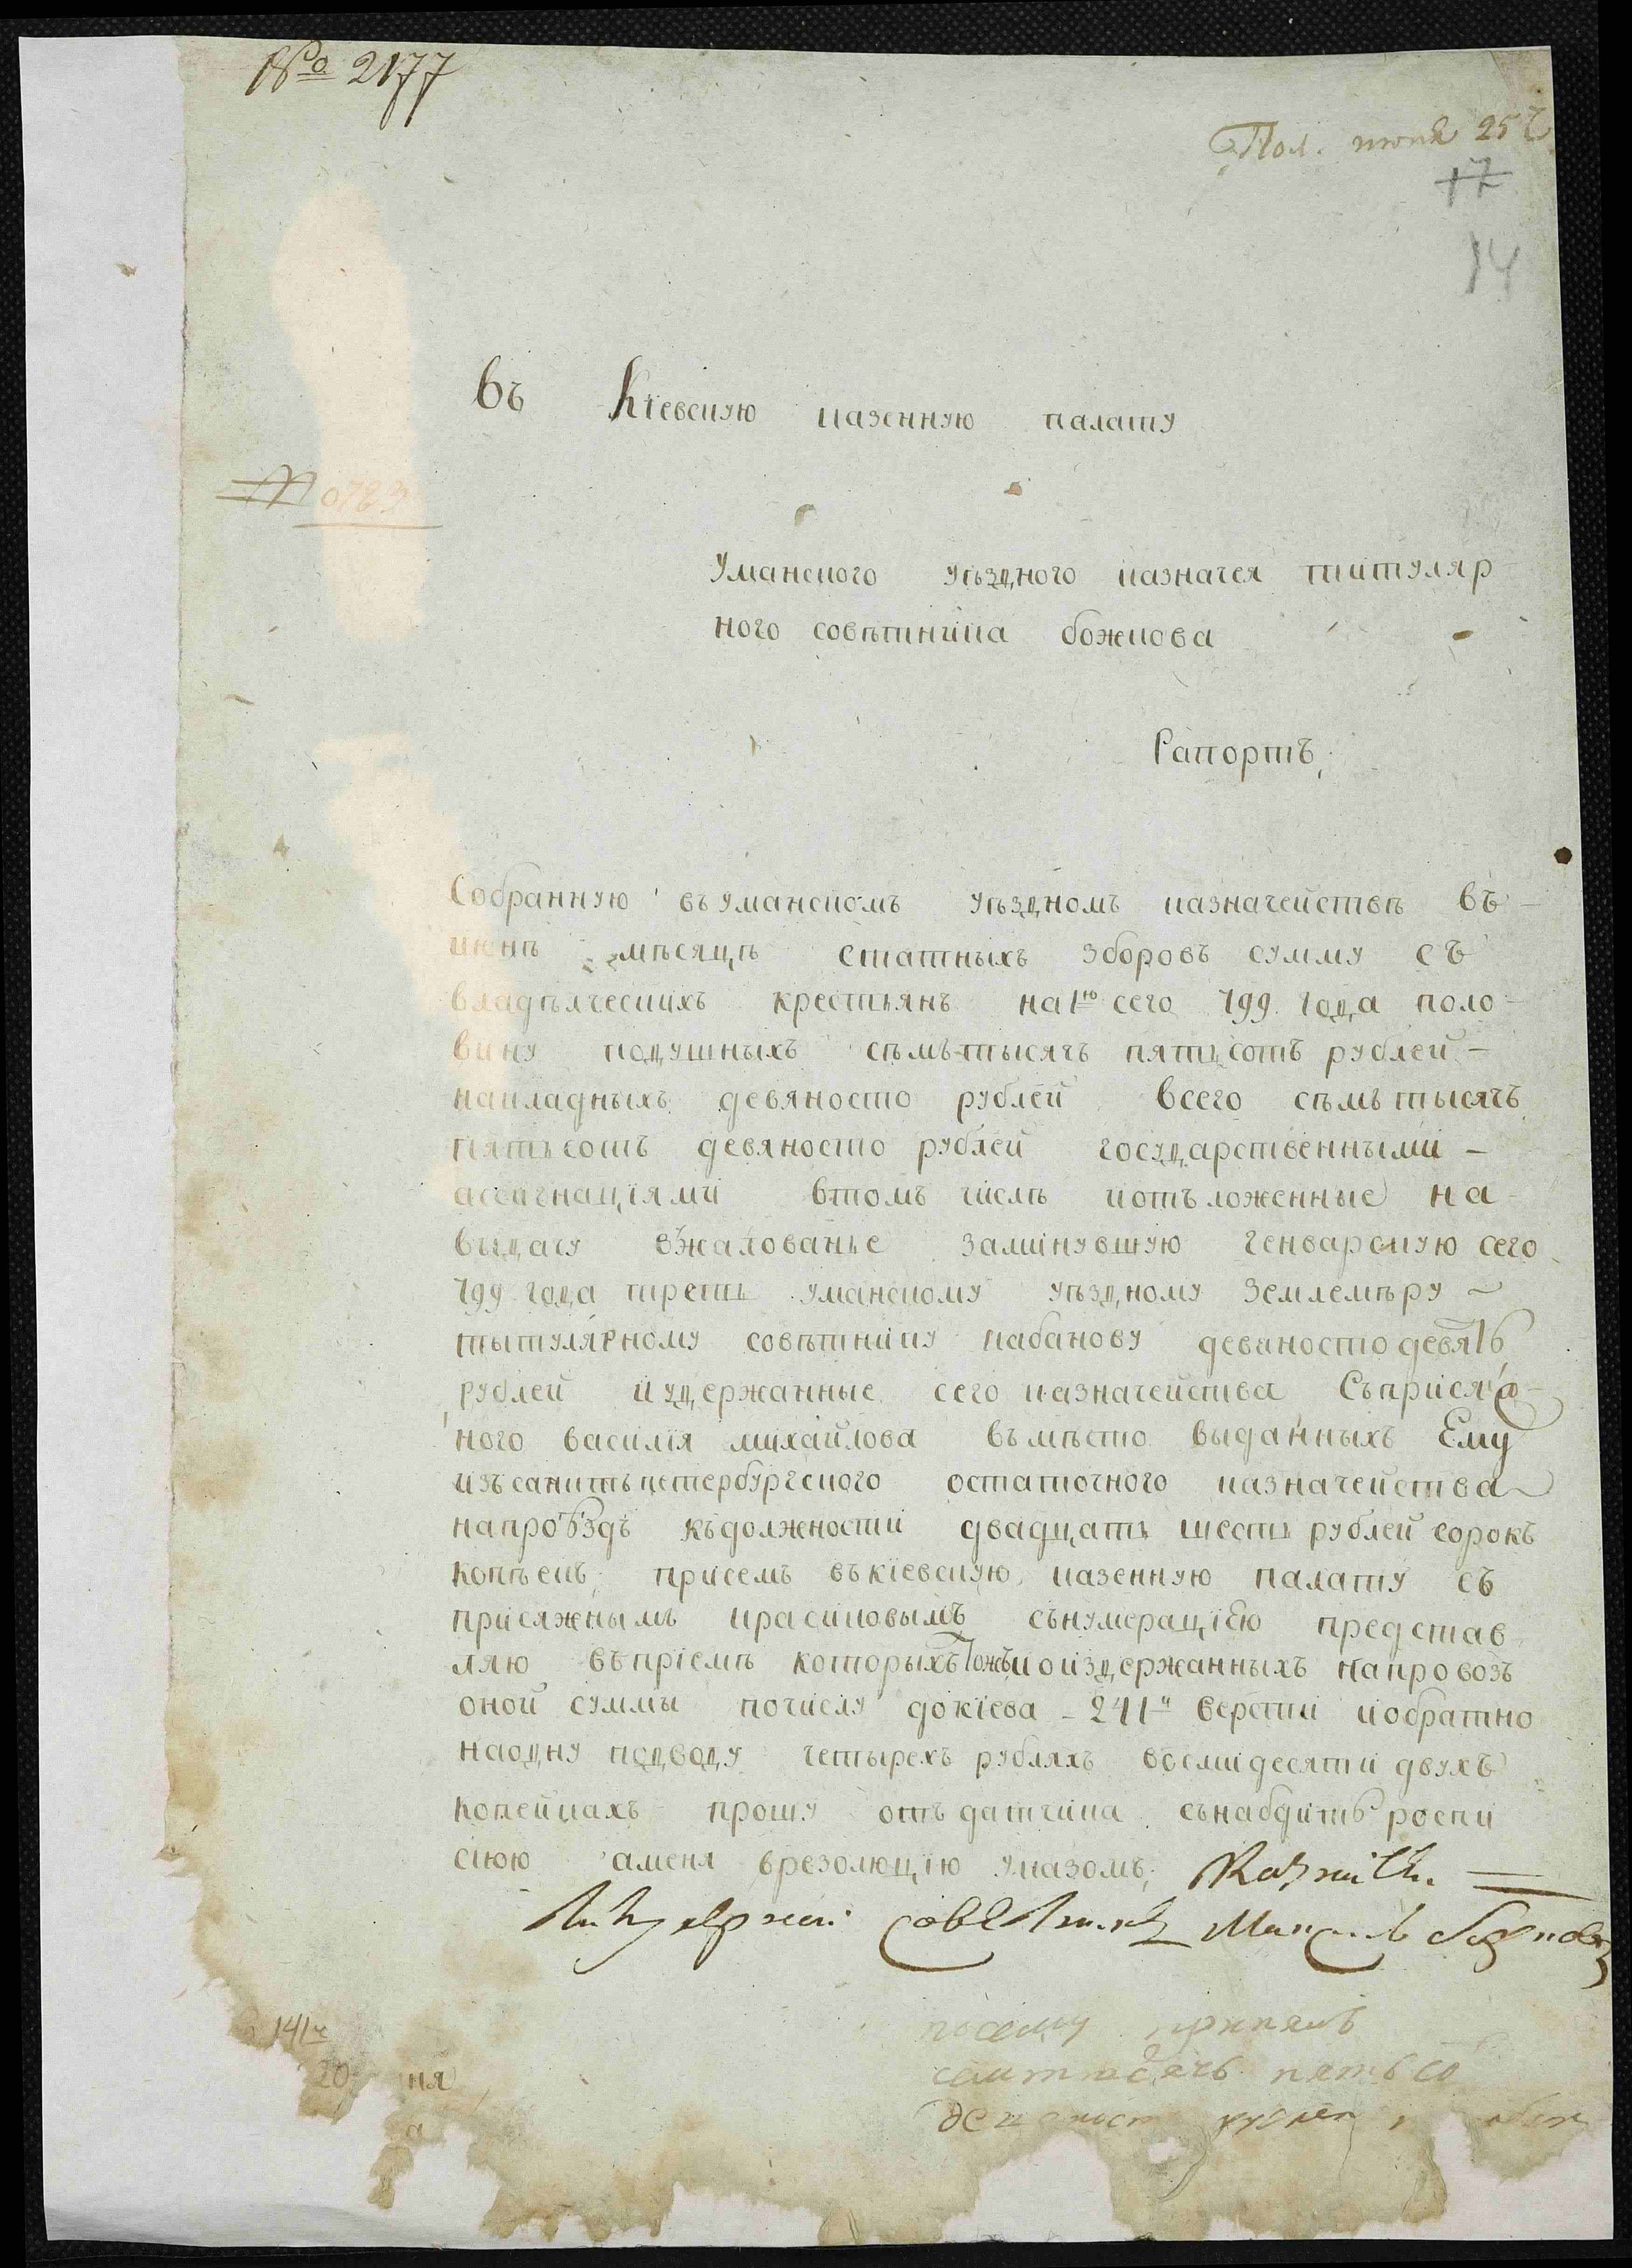 № 2177
Пол. июня 25 ч
17
14
Въ Кіевскую казенную палату
Уманского уѣздного казначея титуляр
ного совѣтника божкова
Рапортъ.
Собранную въуманскомъ уѣздномъ казначействѣ въ
июнѣ мѣсяцѣ статныхъ зборовъ сумму съ
владѣлческихъ крестьянъ на 1ю сего 799 года поло
вину подушныхъ сѣмътысячъ пятьсотъ рублей –
накладныхъ девяносто рублей всего сѣмътысячъ
пятьсотъ девяносто рублей государственными –
ассигнаціями втомъ числѣ иотъложенные на
выдачу вжалованье заминувшую генварскую сего
799 года треть уманскому уѣздному землемѣру ~
тытулярному совѣтнику кабанову девяностодевять
рублей иудержанные сего казначейства Съприсяж
ного василія михайлова въмѣсто выданныхъ Ему
изъсанктъпетербургского остаточного казначейства
напроѣздъ къдолжности двадцать шесть рублей сорокъ
копѣекъ присемъ въкіевскую казенную палату съ
присяжнымъ красиковымъ сънумерацією представ
ляю въпріемѣ которыхъ тожъ иоиздержанныхъ напровозъ
оной суммы почислу докіева – 241й версти иобратно
наодну подводу четырехъ рубляхъ восмидесяти двухъ
копейкахъ прошу отъдатчика сънабдить роспи
скою аменя врезолюцію указомъ.
совѣтникъ
141
20 ня
а
посему принялъ
пятьсо